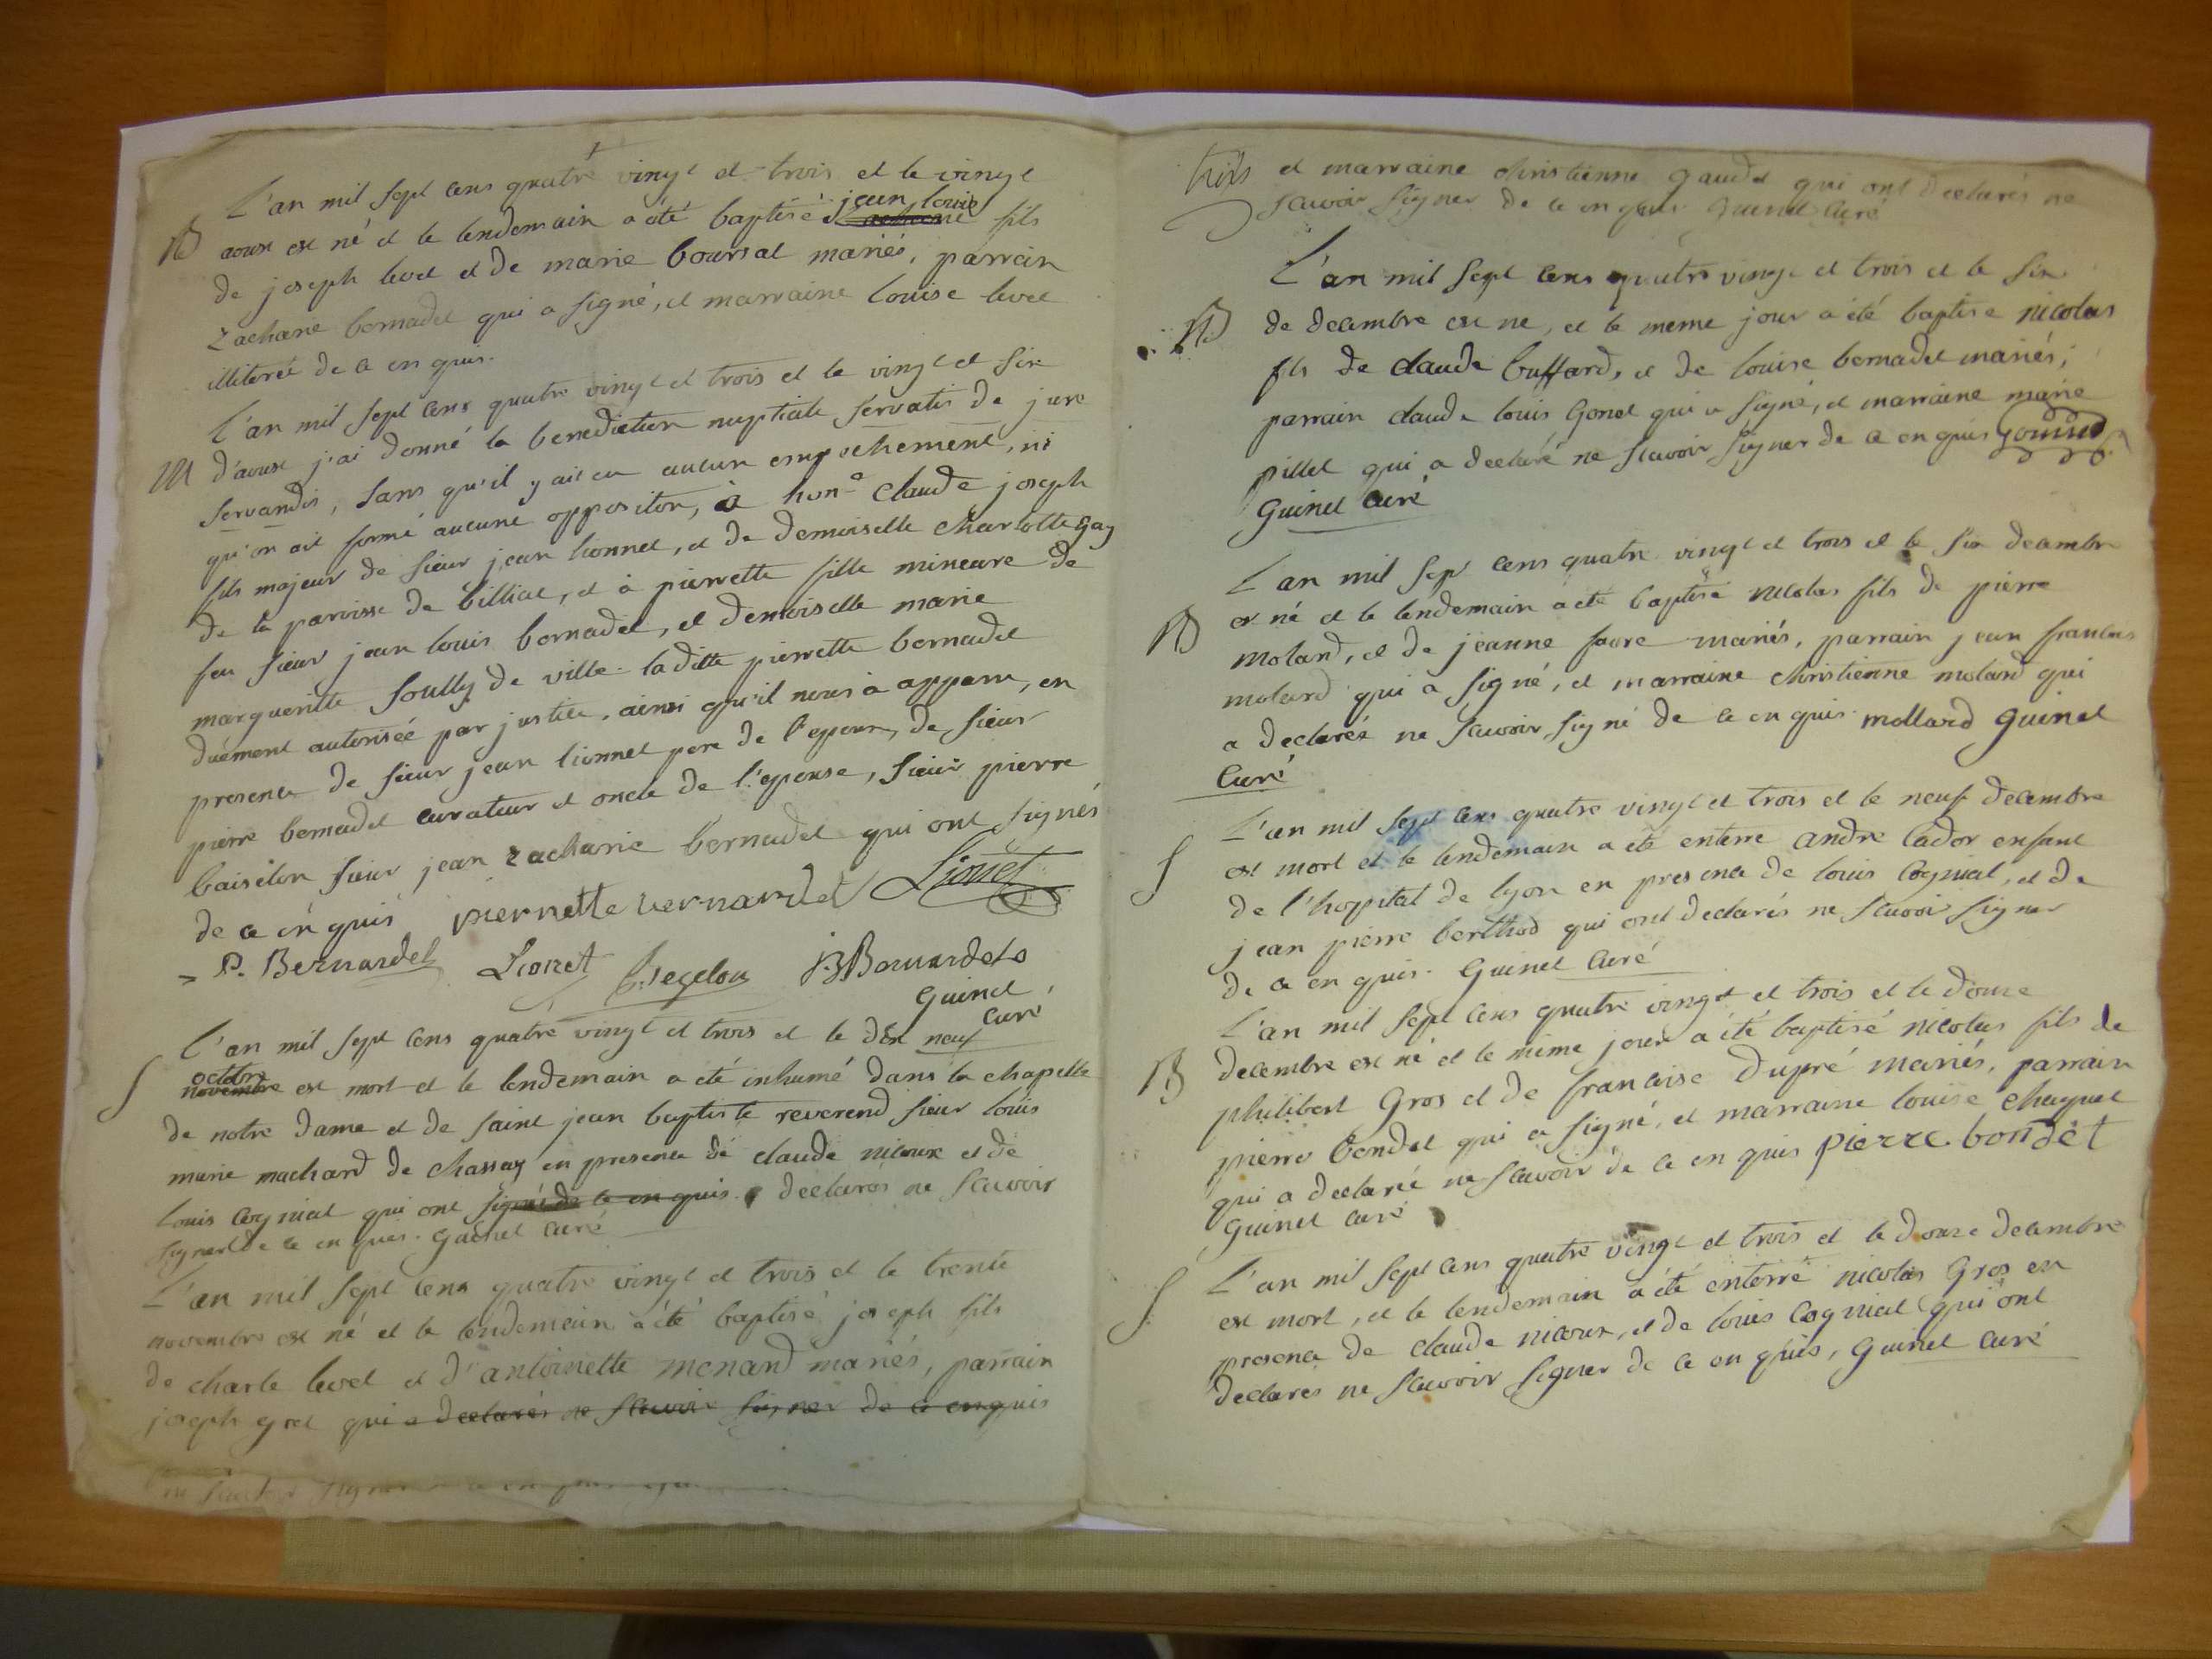 L'an mil sept cens quatre vingt et trois et le vingt
B aoust est né et le lendemain a été baptisé jean louis fils
de joseph levet et de marie boursat mariés, parrain
zacharie bernadet qui a signé, et marraine louise levet
illiterée de ce enquis.
L'an mil sept cens quatre vingt et trois et le vingt et six
M d'aoust j'ai donné la benediction nuptiale servatis de jure
servandis, sans qu'il y ait eu aucun empechement, ni
qu'on ait formé aucune oppositon, à hon.e claude joseph
fils majeur de sieur jean lionnet, et de demoiselle charlotte gay
de la paroisse de billiat, et à pierrette fille mineure de
feu sieur jean louis bernadet, et demoiselle marie
marguerite soully de ville. la ditte pierrette bernadet
duement autorisée par justice, ainsi qu'il nous a apparu, en
presence de sieur jean lionnet pere de l'epoux, de sieur
pierre bernadet curateur et oncle de l'epouse, sieur pierre
baiselon sieur jean zacharie bernadet qui ont signés
de ce enquis pierrette bernardet Lionet
P. Bernardet Lionet JZ Bernardet
Guinet
curé
L'an mil sept cens quatre vingt et trois et le dix neuf
octobre
S novembre est mort et le lendemain a été inhumé dans la chapelle
de notre dame et de saint jean baptiste reverend sieur louis
marie machard de chassay en presence de claude nicoux et de
louis cognial qui ont signé de ce enquis declarés ne scavoir
signer de ce enquis. Guinet curé
L'an mil sept cens quatre vingt et trois et le trente
novembre est né et le lendemain a été baptisé joseph fils
de charle levet et d'antoinette menard mariés, parrain
joseph grel qui a declarés ne scavoir signer de ce enquis
trois et marraine christienne gaudet qui ont declarés ne
scavoir signer de ce enquis Guinet curé
L'an mil sept cens quatre vingt et trois et le six
B de decembre est ne, et le meme jour a été baptise nicolas
fils de claude buffard, et de louise bernadet mariés,
parrain claude louis Gonet qui a signé, et marraine marie
pillet qui a declaré ne scavoir signer de ce enquis gonnet
Guinet curé
L'an mil sept cens quatre vingt et trois et le six decembre
B est né et le lendemain a eté baptisé nicolas fils de pierre
molard, et de jeanne favre mariés, parrain jean francois
molard qui a signé, et marraine christienne molard qui
a declarée ne scavoir signé de ce enquis. mollard Guinet
Curé
L'an mil sept cens quatre vingt et trois et le neuf decembre
S est mort et le lendemain a été enterre andre lador enfant
de l'hopital de lyon en presence de louis cognial, et de
jean pierre berthod qui ont declarés ne scavoir signer
de ce enquis. Guinet Curé
L'an mil sept cens quatre vingt et trois et le douze
B decembre est né et le même jour a été baptisé nicolas fils de
philibert Gros et de francoise dupré mariés, parrain
pierre bondet qui a signé, et marraine louise chaynet
qui a declaré ne scavoir de ce enquis pierre bondet
Guinet curé
L'an mil sept cens quatre vingt et trois et le douze decembre
S est mort, et le lendemain a été enterré nicolas Gros en
presence de claude nicoux, et de louis cognial qui ont
declarés ne scavoir signer de ce enquis, Guinet curé